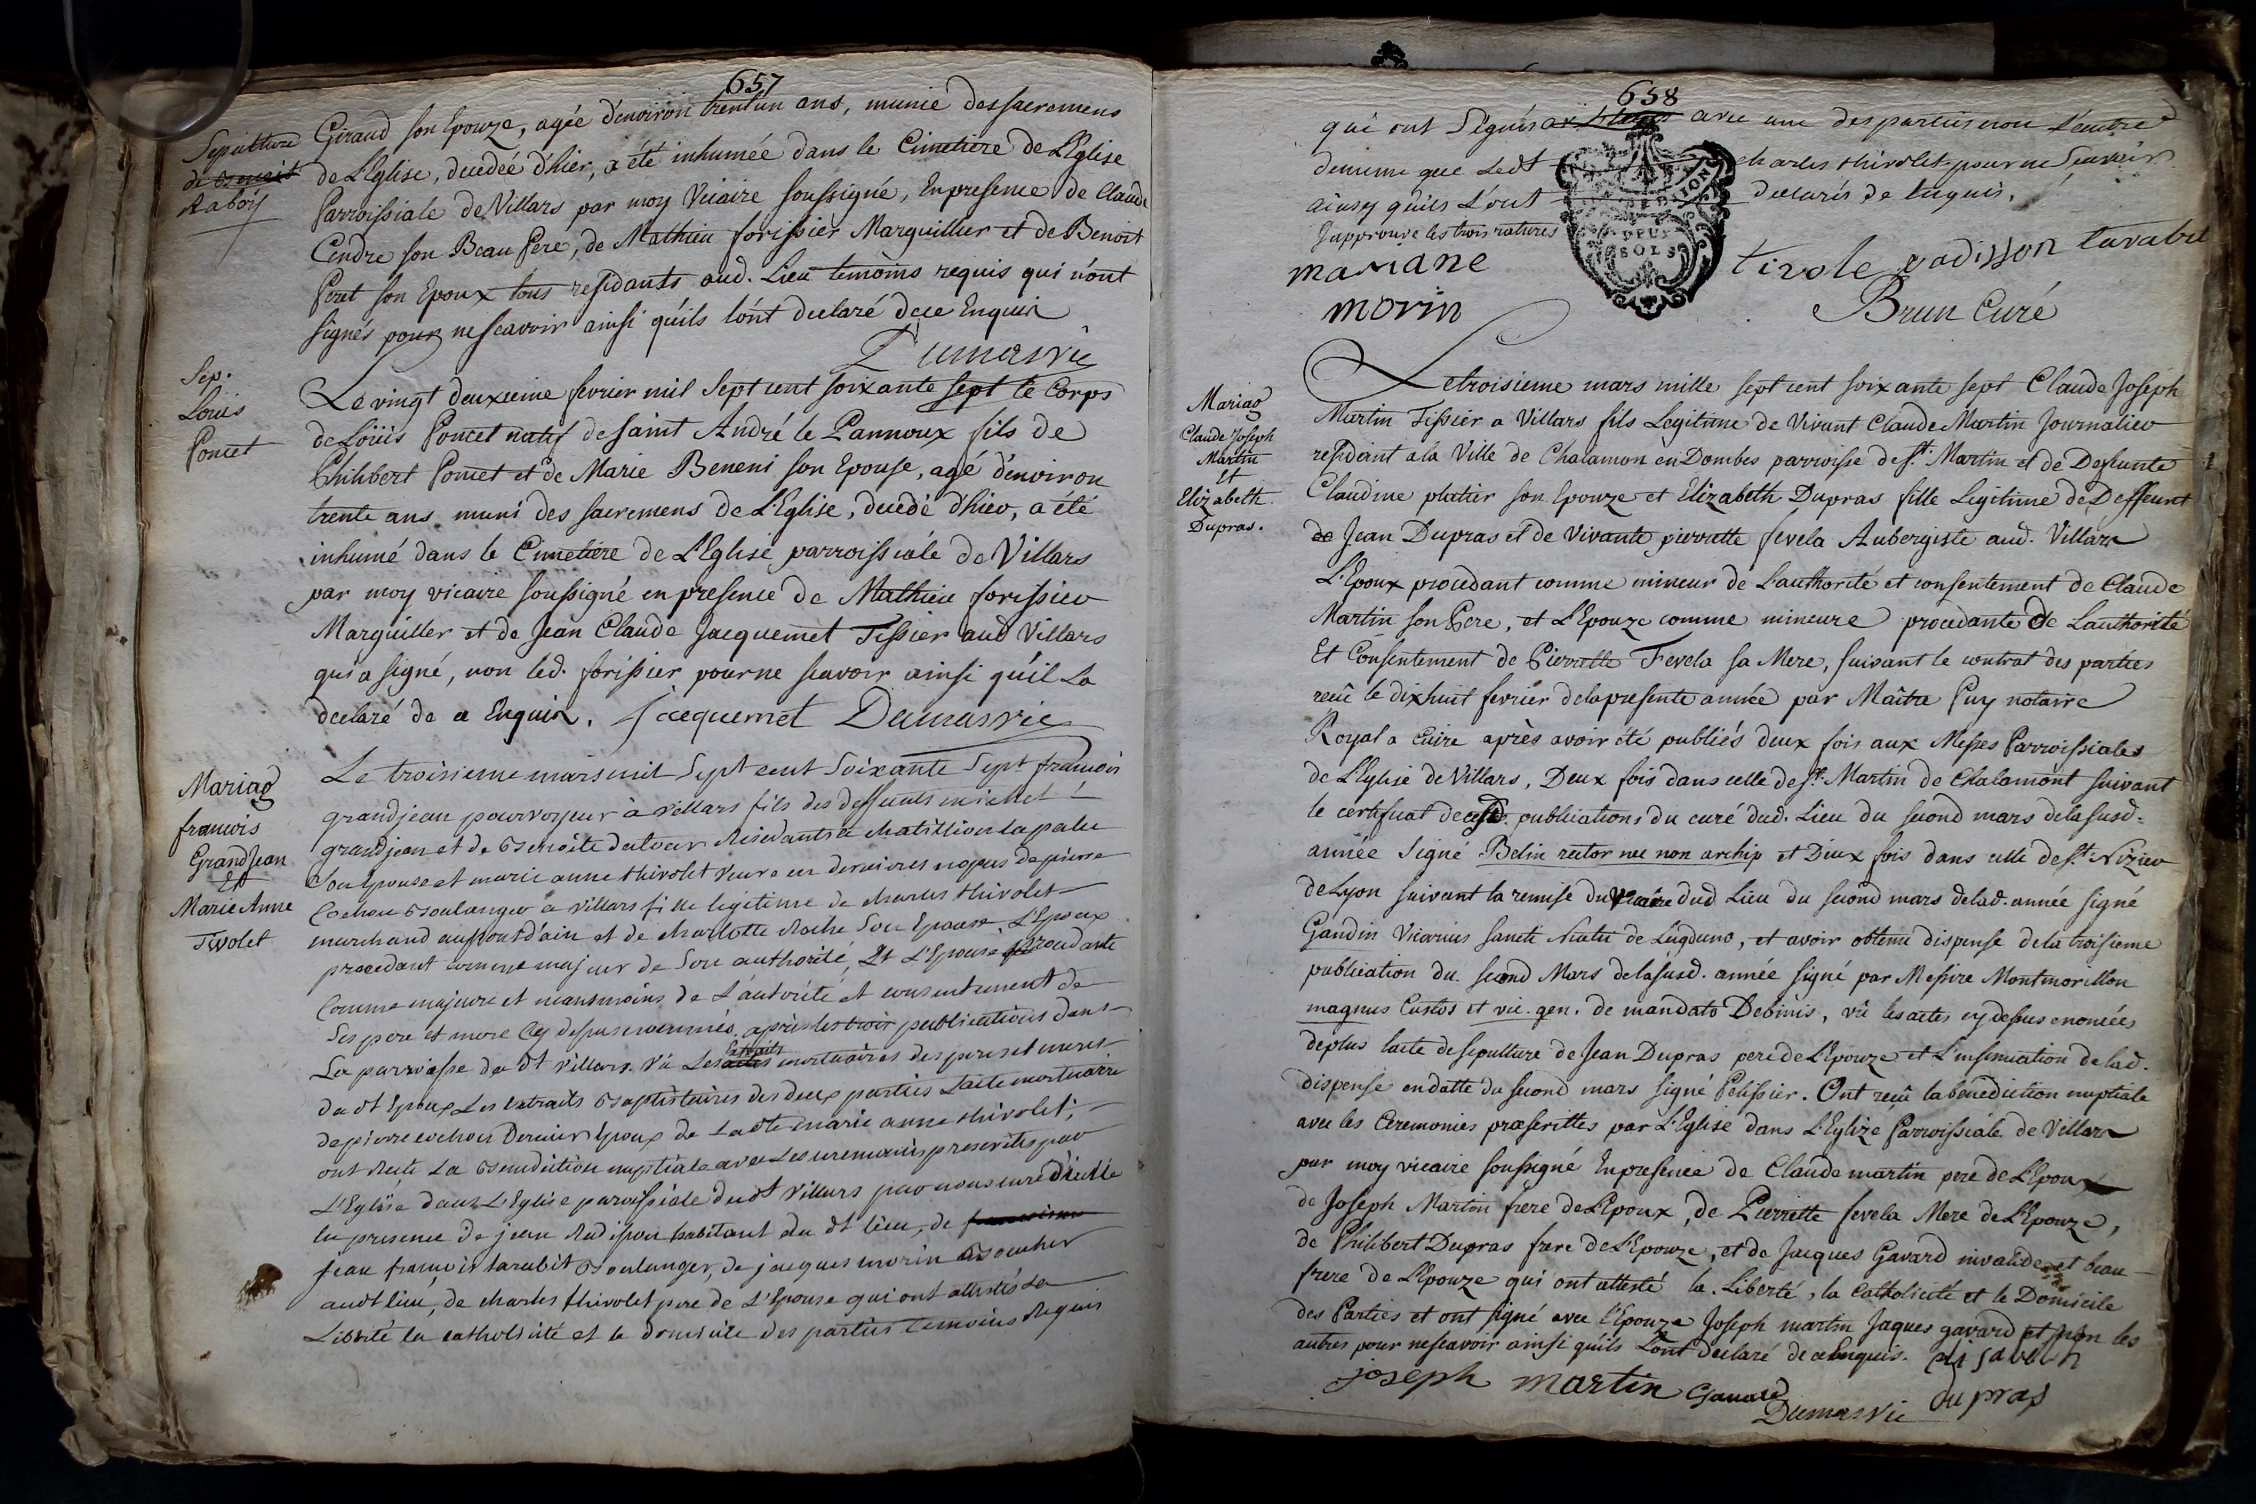 657
Sepulture
de Benoit
Raboy
Giraud son Epouze, agée d'environ trentun ans, munie des sacremens
de L'Eglise, decedée d'hier, a été inhumée dans le Cimetiere de L'Eglise
Parroissiale de Villars par moy Vicaire soussigné, En presence de Claude
Cendre son Beau Pere, de Mathieu forissier Marguillier et de Benoit
Peret son Epoux tous residants aud. Lieu temoins requis qui n'ont
signés pour ne scavoir ainsi qu'ils l'ont declaré de ce Enquis
Dumas vic
Sep.
Loüis
Poncet
Le vingt deuxieme fevrier mil sept cent soixante sept le Corps
de Loüis Poncet natif de saint André le Pannoux fils de
Philibert Poncet et de Marie Beneni son Epouse, agé d'environ
trente ans muni des sacremens de L'Eglise, decedé d'hier, a été
inhumé dans le Cimetiere de L'Eglise parroissiale de Villars
par moy vicaire soussigné en presence de Mathieu forissier
Marguiller et de Jean Claude Jacquemet Tissier aud Villars
qui a signé, non led. forissier pour ne scavoir ainsi qu'il La
declaré de ce Enquis. Jacquemet Dumas vic
Mariag
francois
GrandJean
Et
Marie Anne
Tivolet
Le troisieme mars mil Sept cent Soixante Sept francois
grandjean pourvoyeur à villars fils des deffunts michel
grandjean et de Benoite Residants a chatillion la palu
Son Epouse et marie anne thivolet veuve en dernieres nopces de pierre
Cochon Boulanger a villars fille legitime de charles thivolet
marchand au pont d'ain et de charlotte Roche Son Epouse, L'Epoux
procedant comme majeur de Son authorité, Et L'Epouse procedante
Comme majeure et neansmoins de L'autorité et consentement de
Ses pere et mere Cy dessus nommés, après les trois publications dans
La parroisse du dt villars. Vu Les actes Extraits mortuaires des peres et meres
du dt Epoux Les extraits Baptistaires des deux parties L'acte mortuaire
de pierre cochon Dernier Epoux de La dte marie anne thivolet,
ont Recu La Benediction nuptiale avec Les ceremonies prescrites par
L'Eglise dans L'Eglise parroissiale du dt Villars par nous curé d'icelle
En presence de jean Radisson habitant du dt lieu, de
jean francois tarabit Boulanger, de jacques morin Boucher
au dt lieu, de charles thivolet pere de L'Epouse qui ont attestés La
Liberté la catholicité et le domicile des parties temoins Requis
658
qui ont Signés avec une des parties non L'autre
de meme que Ledt charles thivolet pour ne Scavoir
ainsy qu'ils L'ont declarés de Enquis.
J'approuve les trois ratures
DEUX
SOLS
mariane tivole radisson tarabit
morin Brun Curé
Mariag
Claude Joseph
Martin
Et
Elizabeth
Dupras.
Le troisieme mars mille sept cent soixante sept Claude Joseph
Martin Tissier a Villars fils Legitime de Vivant Claude Martin Journalier
residant a la Ville de Chalamon en Dombes parroisse de St. Martin et de Defunte
Claudine platier son Epouze et Elizabeth Dupras fille Legitime de Deffeunt
de Jean Dupras et de Vivante pierrette fevela Aubergiste aud. Villars
L'Epoux procedant comme mineur de L'authorité et consentement de Claude
Martin son Pere, et L'Epouze comme mineure procedante de Lauthorité
Et Consentement de Pierrette Fevela sa Mere, suivant le contrat des parties
recû le dixhuit fevrier de la presente année par Maitre Puy notaire
Royal a Cuire après avoir été publiés deux fois aux Messes Parroissiales
de L'Eglise de Villars, Deux fois dans celle de St. Martin de Chalamont suivant
le certificat de cesd. publications du curé dud. Lieu du second mars de la susd.
année Signé Belin rector nec non archip et Deux fois dans celle de St Nizier
de Lyon suivant la remise du Vicaire dud Lieu du second mars de lad. année signé
Gandin Vicarius sancti Nicetii de Lugduno, et avoir obtenu dispense de la troisieme
publication du second Mars de la susd. année signé par Messire Montmorillon
magnus Custos et vic. gen. de mandato Dominis, vû les actes cy dessus enoncées
de plus l'acte de sepulture de Jean Dupras pere de L'Epouze et L'insinuation de lad.
dispense en datte du second mars signé Pelissier. Ont reçû la benediction nuptiale
avec les Ceremonies prescrittes par L'Eglise dans L'Eglize Parroissiale de Villars
par moy vicaire soussigné En presence de Claude martin pere de L'Epoux
de Joseph Martin frere de L'Epoux, de Pierrette fevela Mere de L'Epouze,
de Philibert Dupras frere de L'Epouze, et de Jacques Gavard invalide et beau
frere de L'Epouze qui ont attesté la Liberté, la Catholicité et le Domicile
des Parties et ont signé avec l'Epouze Joseph martin Jaques gavard et non les
autres pour ne scavoir ainsi qu'ils L'ont declaré de ce Enquis. elisabeth
joseph martin Gavard dupras
Dumas vic